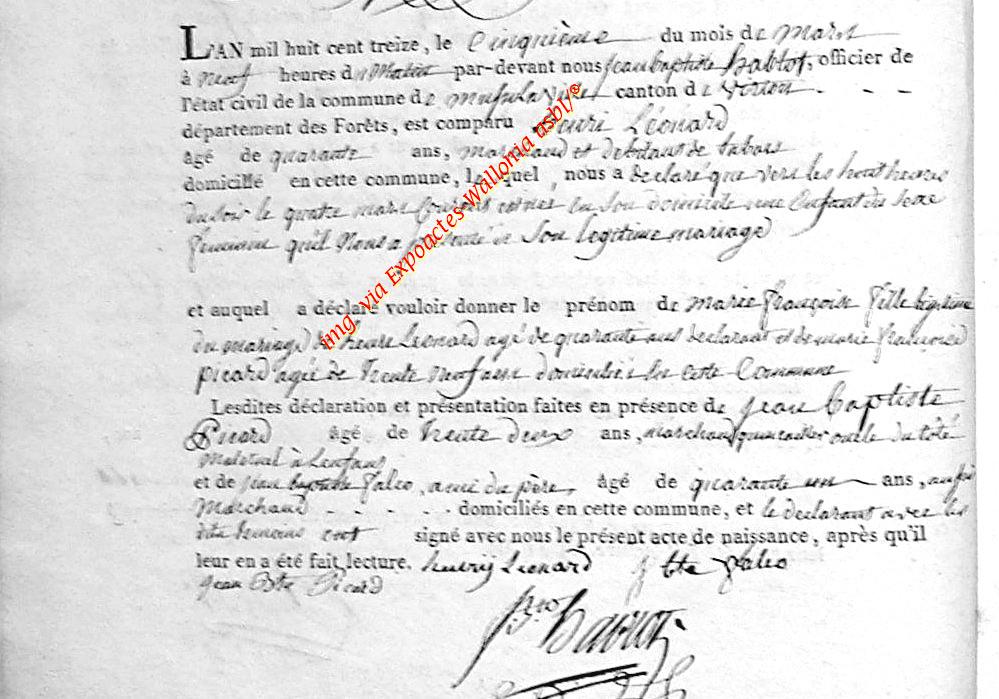 L'AN mil huit cent treize, le Cinquième du mois de Mars
à Neuf heures du Matin par-devant nous jean baptiste Hablot, officier de
l'état civil de la commune de Musson la ville canton de Virton - -
département des Forêts, est comparu Henri Léonard
âgé de quarante ans, Marchand et debitant de tabacs
domicilié en cette commune, lequel nous a declaré que vers les huit heures
du soir le quatre mars Courant est née en son domicile une Enfant du sexe
feminin qu'il Nous a présenté de Son legitime mariage
et auquel a déclaré vouloir donner le prénom de marie françoise fille légitime
du mariage de henri Leonard agé de quarante ans declarant et de marie françoise
picard agée de trente neuf ans domiciliés en cette Commune
Lesdites déclaration et présentation faites en présence de jean baptiste
Picard âgé de trente deux ans, marchand quincailler oncle du coté
maternel à L'enfant
et de jean baptiste Jaleo, ami du père, âgé de quarante un ans, aussi
Marchand - - - - - domiciliés en cette commune, et le declarant avec les
dits temoins ont signé avec nous le présent acte de naissance, après qu'il
leur en a été fait lecture. henry Leonard j bte Jaleo
jean Bte Picard
img via Expoactes-Wallonia asbl/®